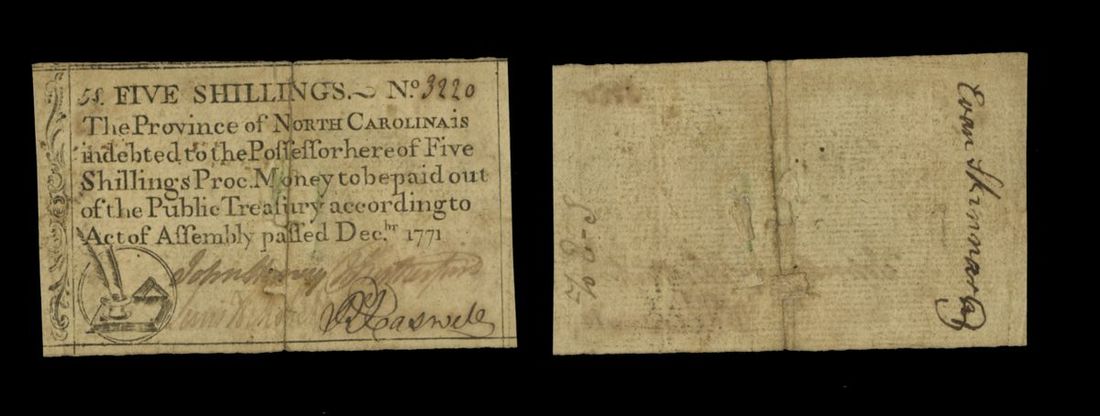 5s. FIVE SHILLINGS. No. 3220
The Province of NORTH CAROLINA is
indebted to the Poſſeſſor hereof Five
Shillings Proc. Money to be paid out
of the Public Treaſury according to
Act of Aſſembly paſſed Dec.br 1771
John Rutherfurd
Lewis
R Caswell
Evan Skinner